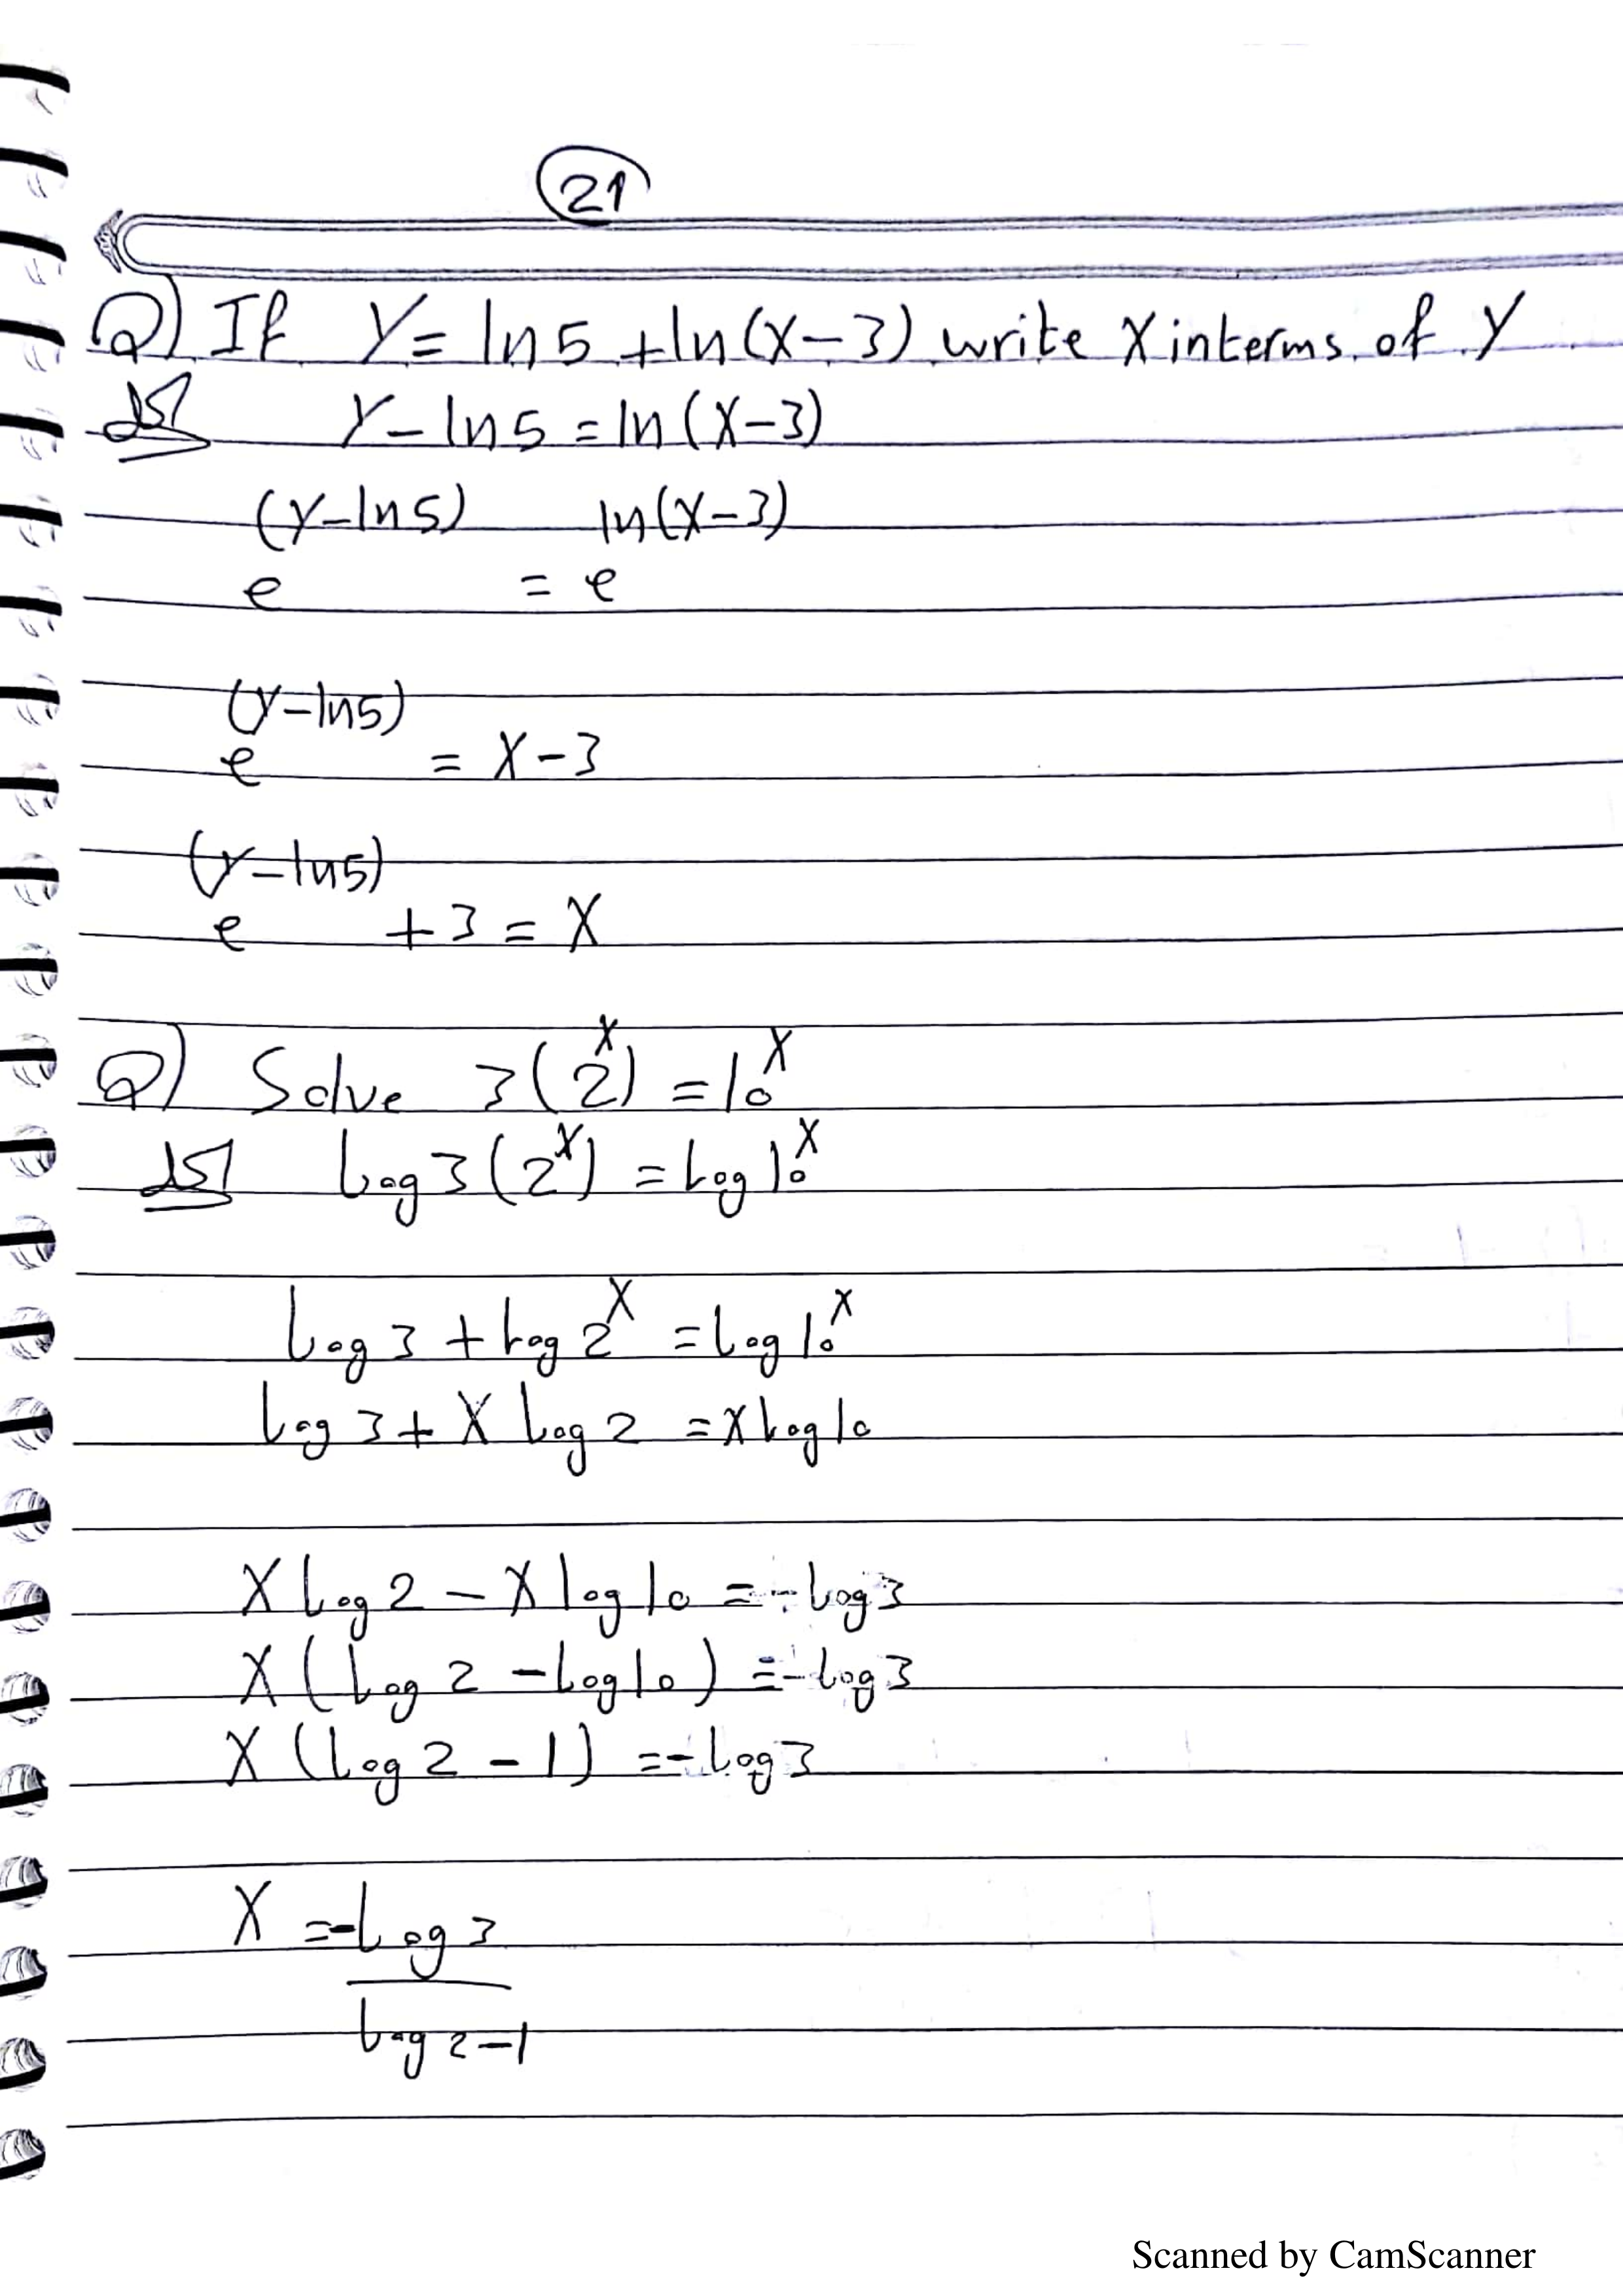 21
Q) If Y = ln 5 + ln (X - 3) write X interms of Y
Y - ln 5 = ln (X - 3)
(Y - ln 5) ln (X - 3)
e = e
(Y - ln 5)
e = X - 3
(Y - ln 5)
e + 3 = X
Q) Solve 3 (2^X) = 10^X
Log 3 (2^X) = Log 10^X
Log 3 + Log 2^X = Log 10^X
Log 3 + X Log 2 = X Log 10
X Log 2 - X log 10 = - Log 3
X (Log 2 - Log 10) = - Log 3
X (Log 2 - 1) = - Log 3
X = - Log 3
Log 2 - 1
Scanned by CamScanner